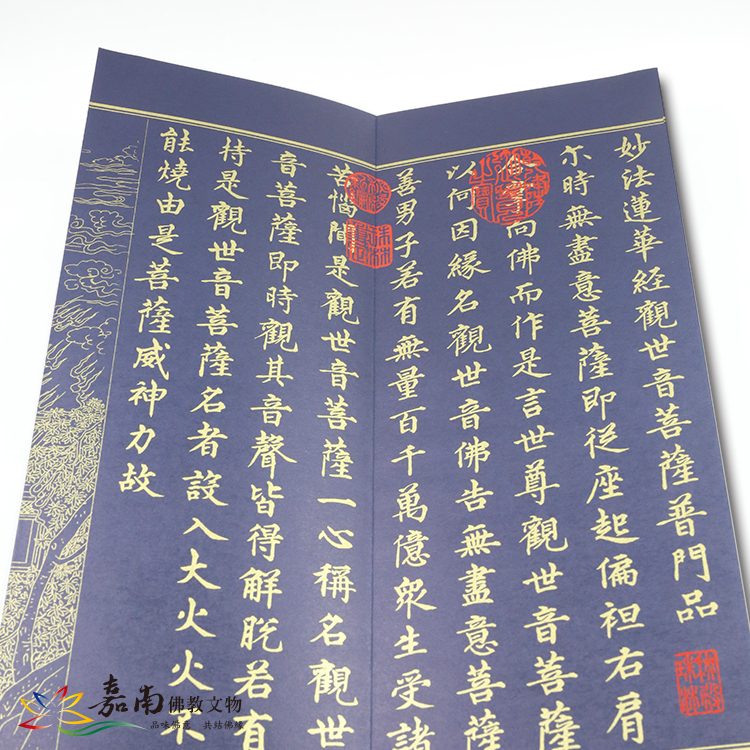 妙法蓮華經觀世音菩薩普門品
尒時無盡意菩薩即從座起偏袒右肩
向佛而作是言世尊觀世音菩薩
以何因緣名觀世音佛告無盡意菩薩
善男子若有無量百千萬億衆生受諸
苦惱聞是觀世音菩薩一心稱名觀世
音菩薩即時觀其音聲皆得解脫若有
持是觀世音菩薩名者設入大火火
能燒由是菩薩威神力故
嘉南佛教文物
品味佛意 共結佛緣